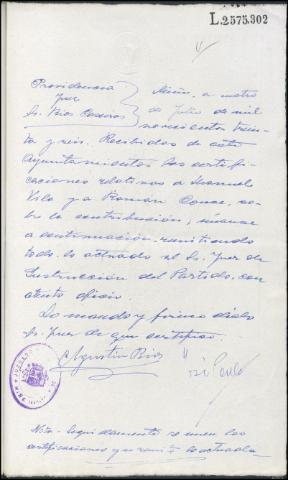 L.2575.302
Providencia
Juez
Sr. Rios
Miño, a
de Julio de mil
novecientos trein-
ta y seis. Recibidas de este
Ayuntamiento las certifi-
caciones relativas a Manuel
Vilo y a Roman Couce, so-
bre la contribución, únanse
a continuación, remitiendo
todo lo actuado al Sr. Juez de
Instrucción del Partido, con
atento oficio.
Lo mandó y firma dicho
Sr. Juez de que certifico.
Agustin Rios
Nota - Seguidamente se unen las
certificaciones y se remite lo actuado